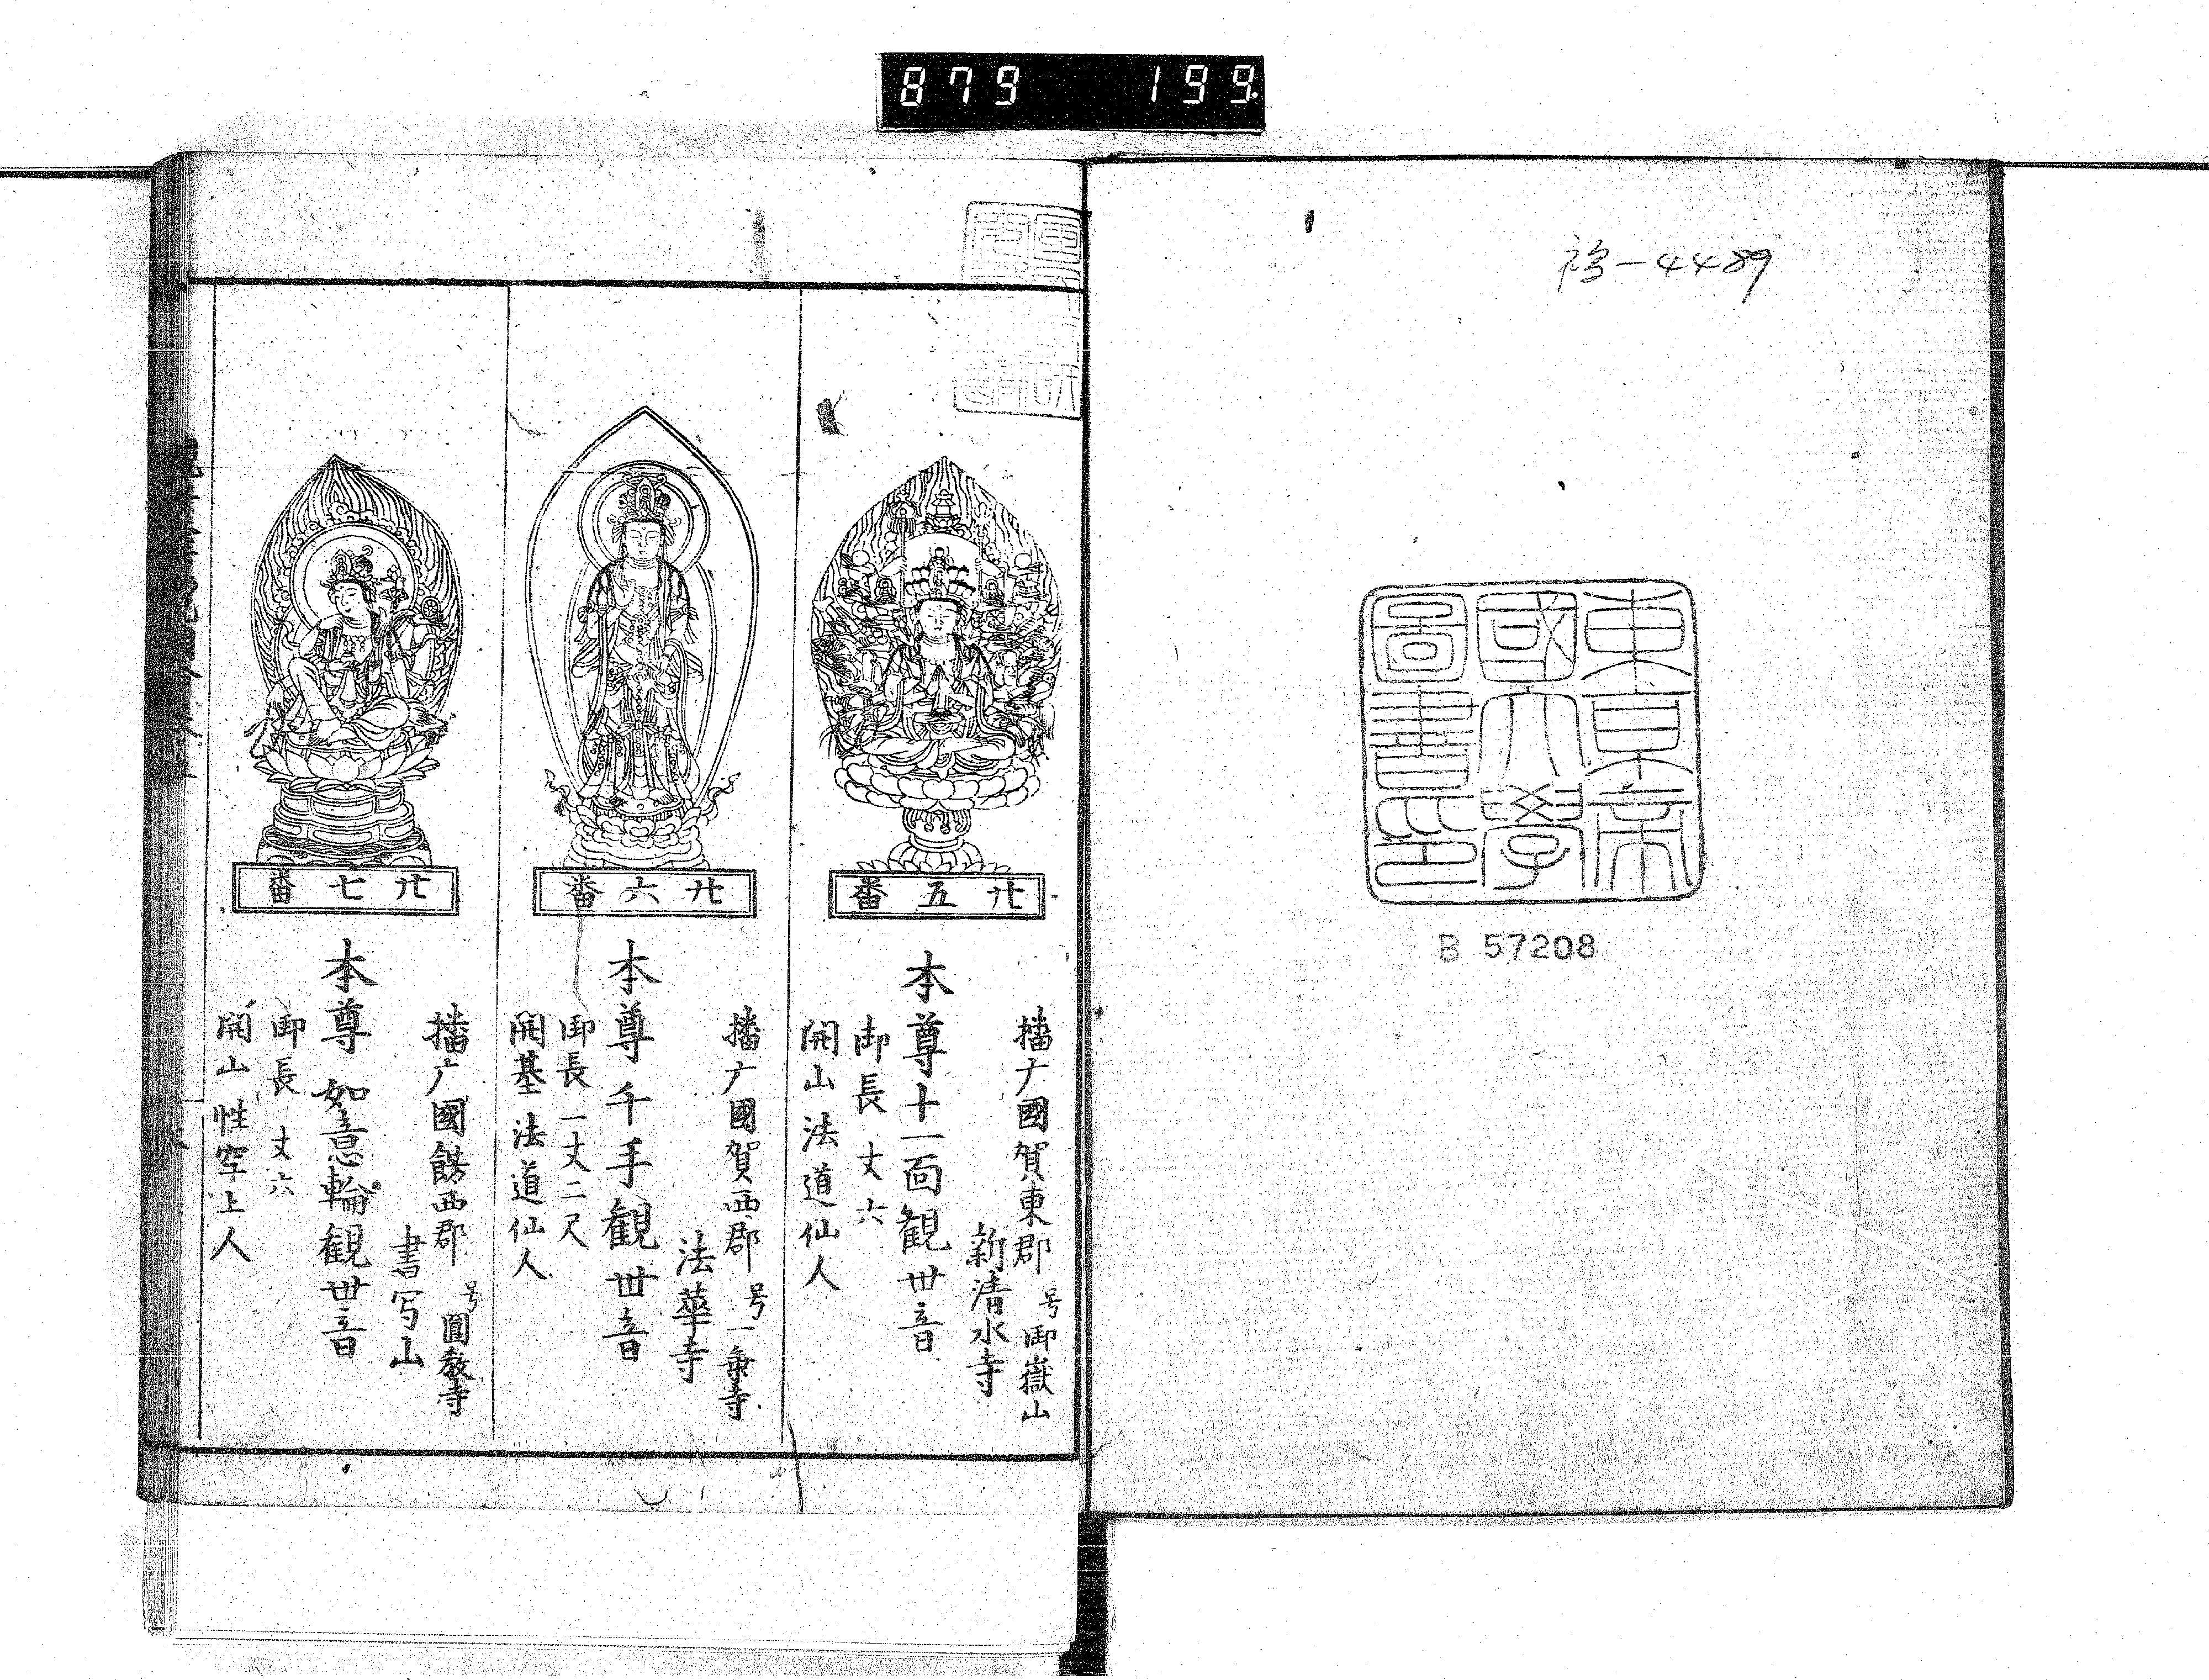 879 199
袮-4489
東京帝
國大學
圖書印
B 57208
廿五番
播广國賀東郡 号御嶽山
新清水寺
本尊十一面観世音
御長丈六
開山法道仙人
廿六番
播广國賀西郡 号一乗寺
法華寺
本尊千手観世音
御長一丈二尺
開基法道仙人
廿七番
播广國餝西郡 号圓教寺
書写山
本尊如意輪観世音
御長丈六
開山性空上人